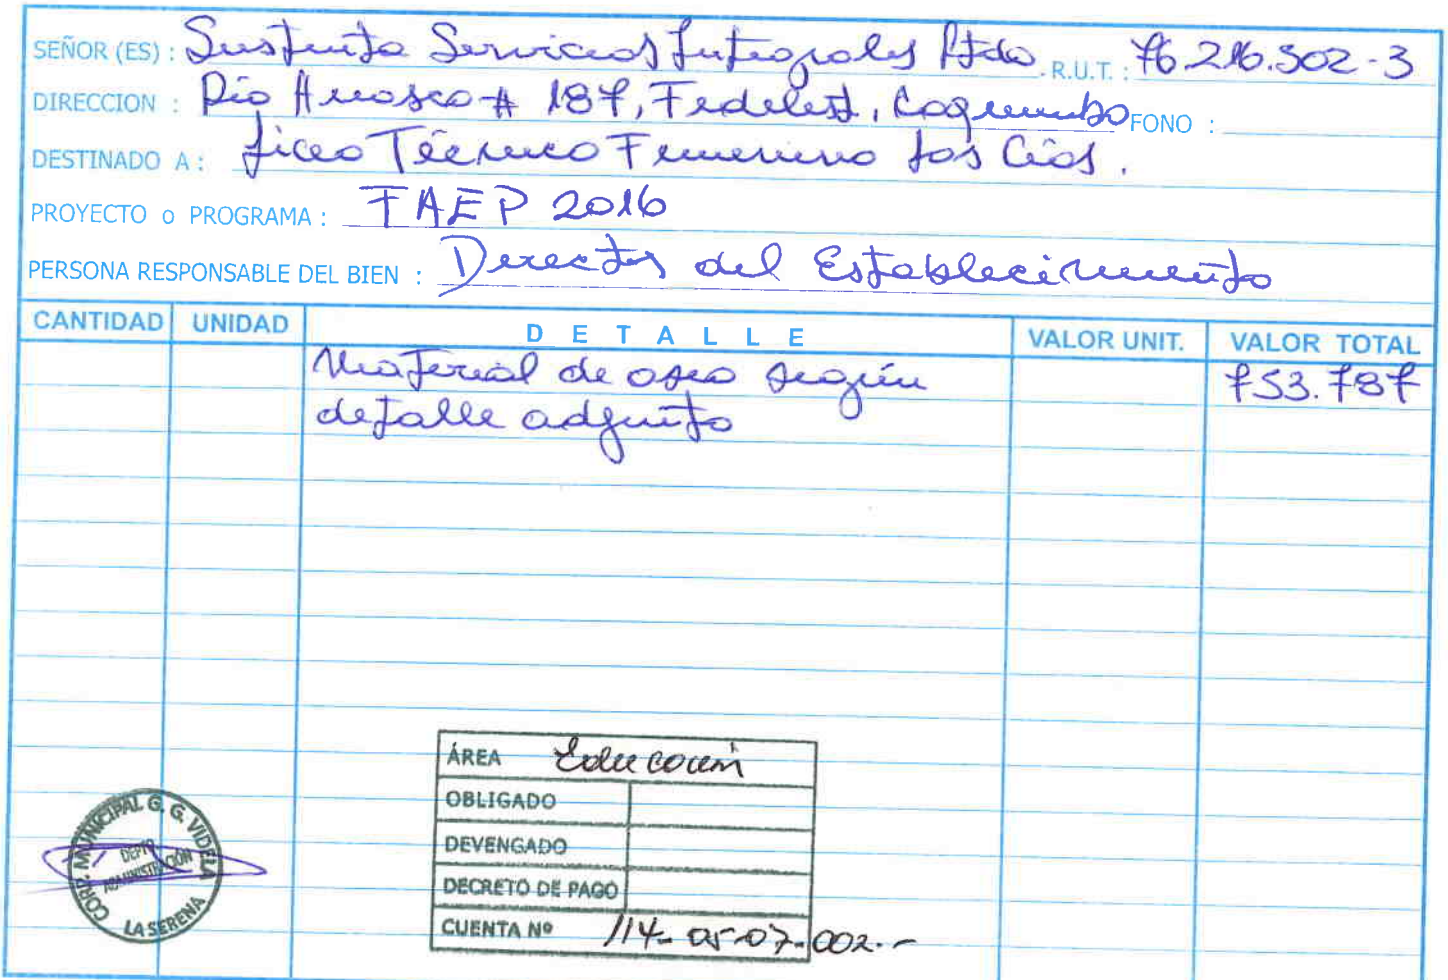 SEÑOR (ES) : Sustenta Servicios Integrales Ltda R.U.T. : 76.216.302-3
DIRECCION : Río Huasco # 187, Tierras Blancas, Coquimbo FONO :
DESTINADO A : Liceo Técnico Femenino Las Cías.
PROYECTO o PROGRAMA : FAEP 2016
PERSONA RESPONSABLE DEL BIEN : Director del Establecimiento
CANTIDAD UNIDAD DETALLE VALOR UNIT. VALOR TOTAL
Material de aseo según 753.787
detalle adjunto
ÁREA Educación
OBLIGADO
DEVENGADO
DECRETO DE PAGO
CUENTA Nº 114-05-07-002.-
CORP. MUNICIPAL G. G. VIDELA
DEPTO
ADMINISTRACIÓN
LA SERENA